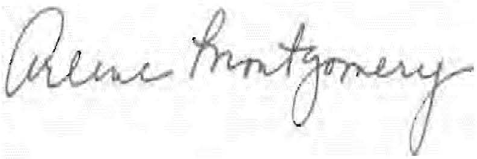 Arlene Montgomery